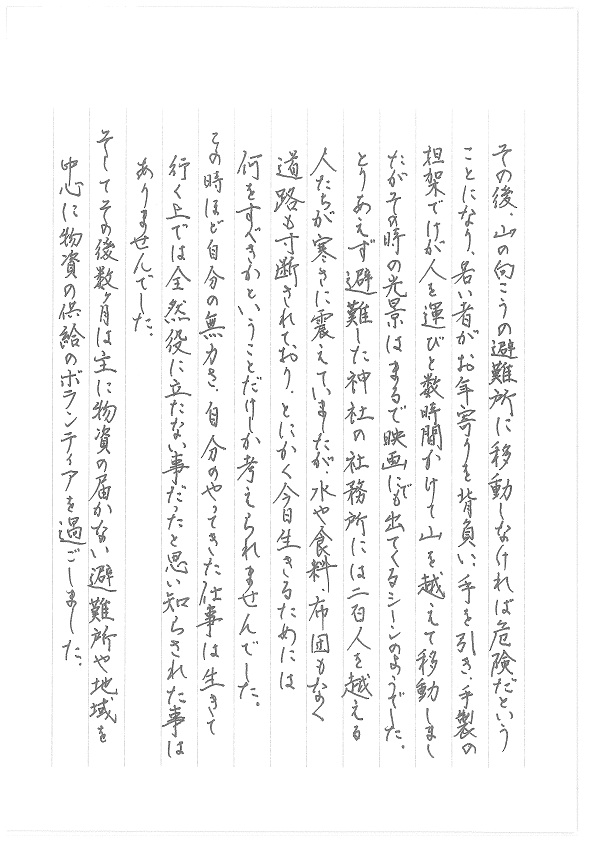 その後、山の向こうの避難所に移動しなければ危険だという
ことになり、若い者がお年寄りを背負い、手を引き、手製の
担架でけが人を運びと数時間かけて山を越えて移動しまし
たがその時の光景はまるで映画にでも出てくるシーンのようでした。
とりあえず避難した神社の社務所には二百人を越える
人たちが寒さに震えていましたが、水や食料、布団もなく
道路も寸断されており、とにかく今日生きるためには
何をすべきかということだけしか考えられませんでした。
この時ほど自分の無力さ、自分のやってきた仕事は生きて
行く上では全然役に立たない事だったと思い知らされた事は
ありませんでした。
そしてその後数ヶ月は主に物資の届かない避難所や地域を
中心に物資の供給のボランティアを過ごしました。